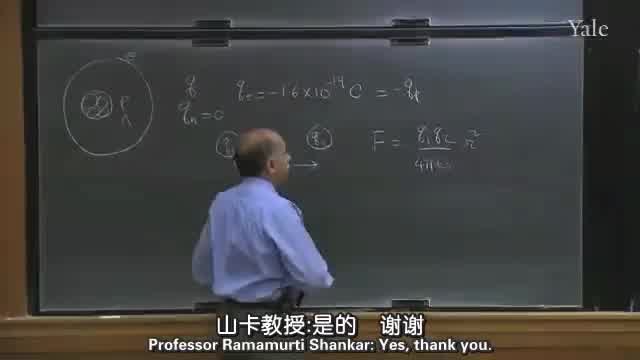 Yale
e
q q_e = -1.6 × 10^-19 C = -q_p
p
n
q_n = 0
q₁ q₂ F = q₁ q₂ / 4πε₀ r²
山卡教授:是的 謝謝
Professor Ramamurti Shankar: Yes, thank you.